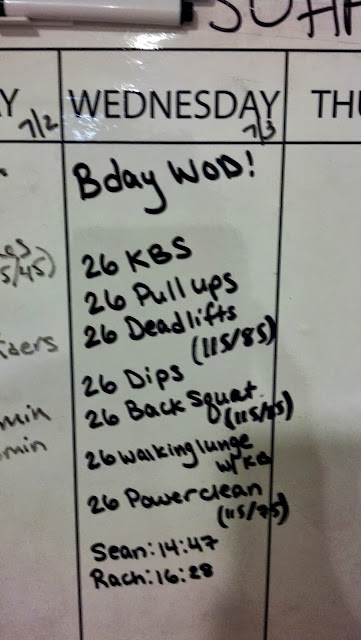 WEDNESDAY
7/2
7/3
THU
Bday WOD!
26 KBS
26 Pull ups
26 Deadlifts
(115/85)
26 Dips
26 Back Squat
26 walking lunge
w/ KB
26 Power clean
(115/75)
Sean: 14:47
Rach: 16:28
5/45)
min
min